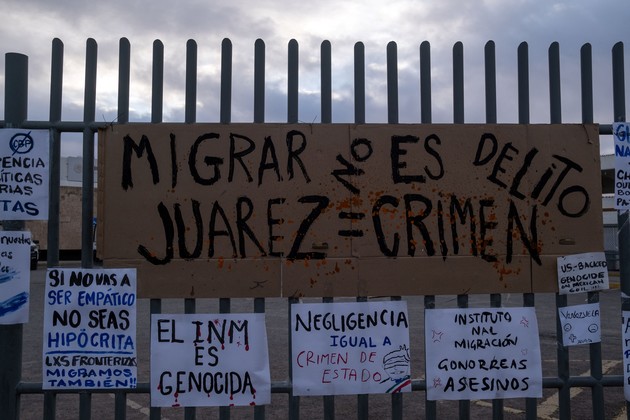 MIGRAR NO ES DELITO
JUAREZ = CRIMEN
SI NO VAS A
SER EMPÁTICO
NO SEAS
HIPÓCRITA
LXS FRONTERIZXS
MIGRAMOS
TAMBIÉN!!
EL INM
ES
GENOCIDA
NEGLIGENCIA
IGUAL A
CRIMEN DE
ESTADO
INSTITUTO
NAL
MIGRACIÓN
GONORREAS
ASESINOS
U.S.-BACKED
GENOCIDE
VENEZUELA